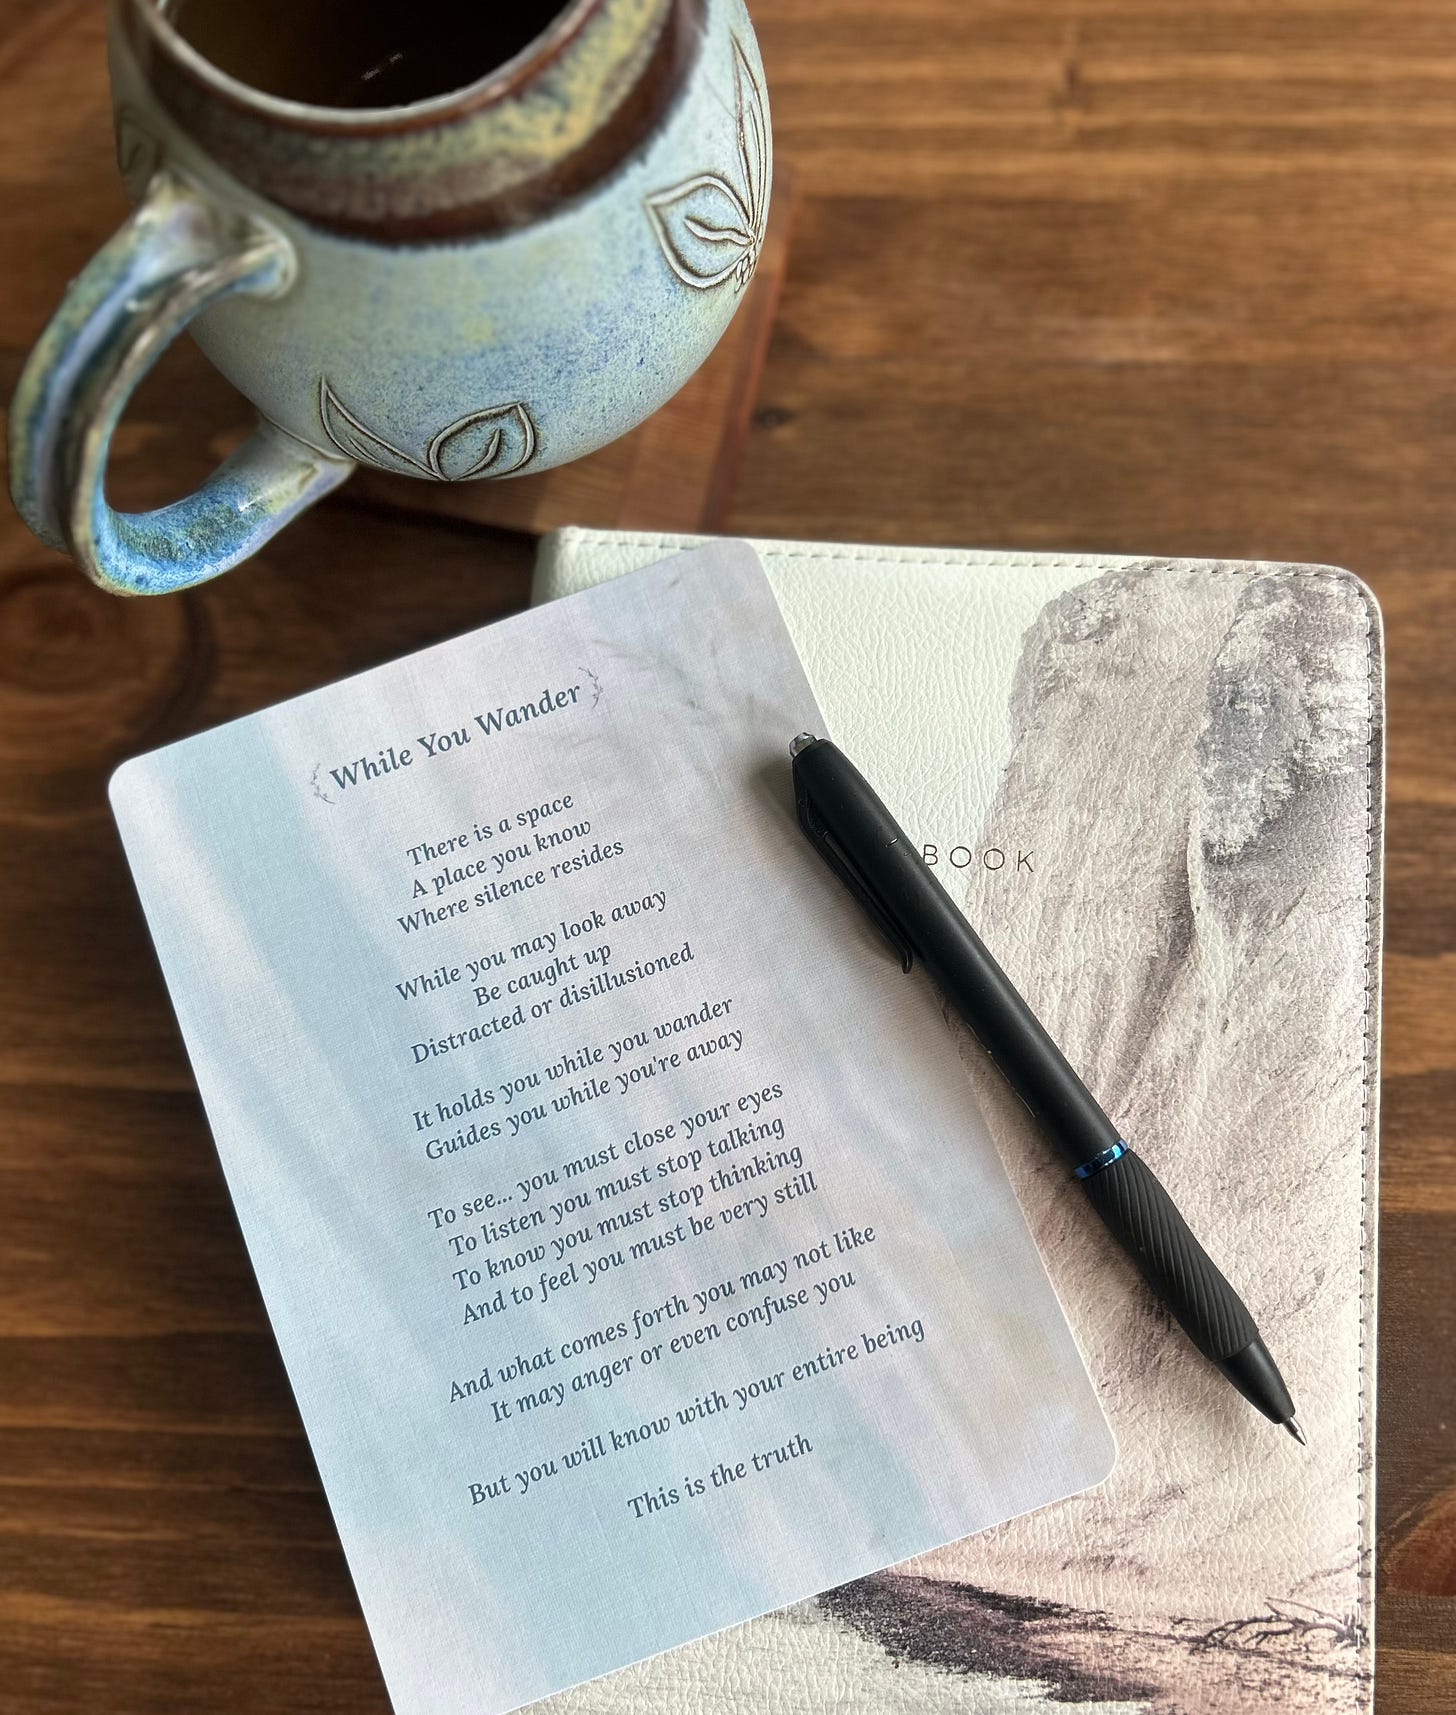 While You Wander
There is a space
A place you know
Where silence resides
While you may look away
Be caught up
Distracted or disillusioned
It holds you while you wander
Guides you while you're away
To see... you must close your eyes
To listen you must stop talking
To know you must stop thinking
And to feel you must be very still
And what comes forth you may not like
It may anger or even confuse you
But you will know with your entire being
This is the truth
BOOK